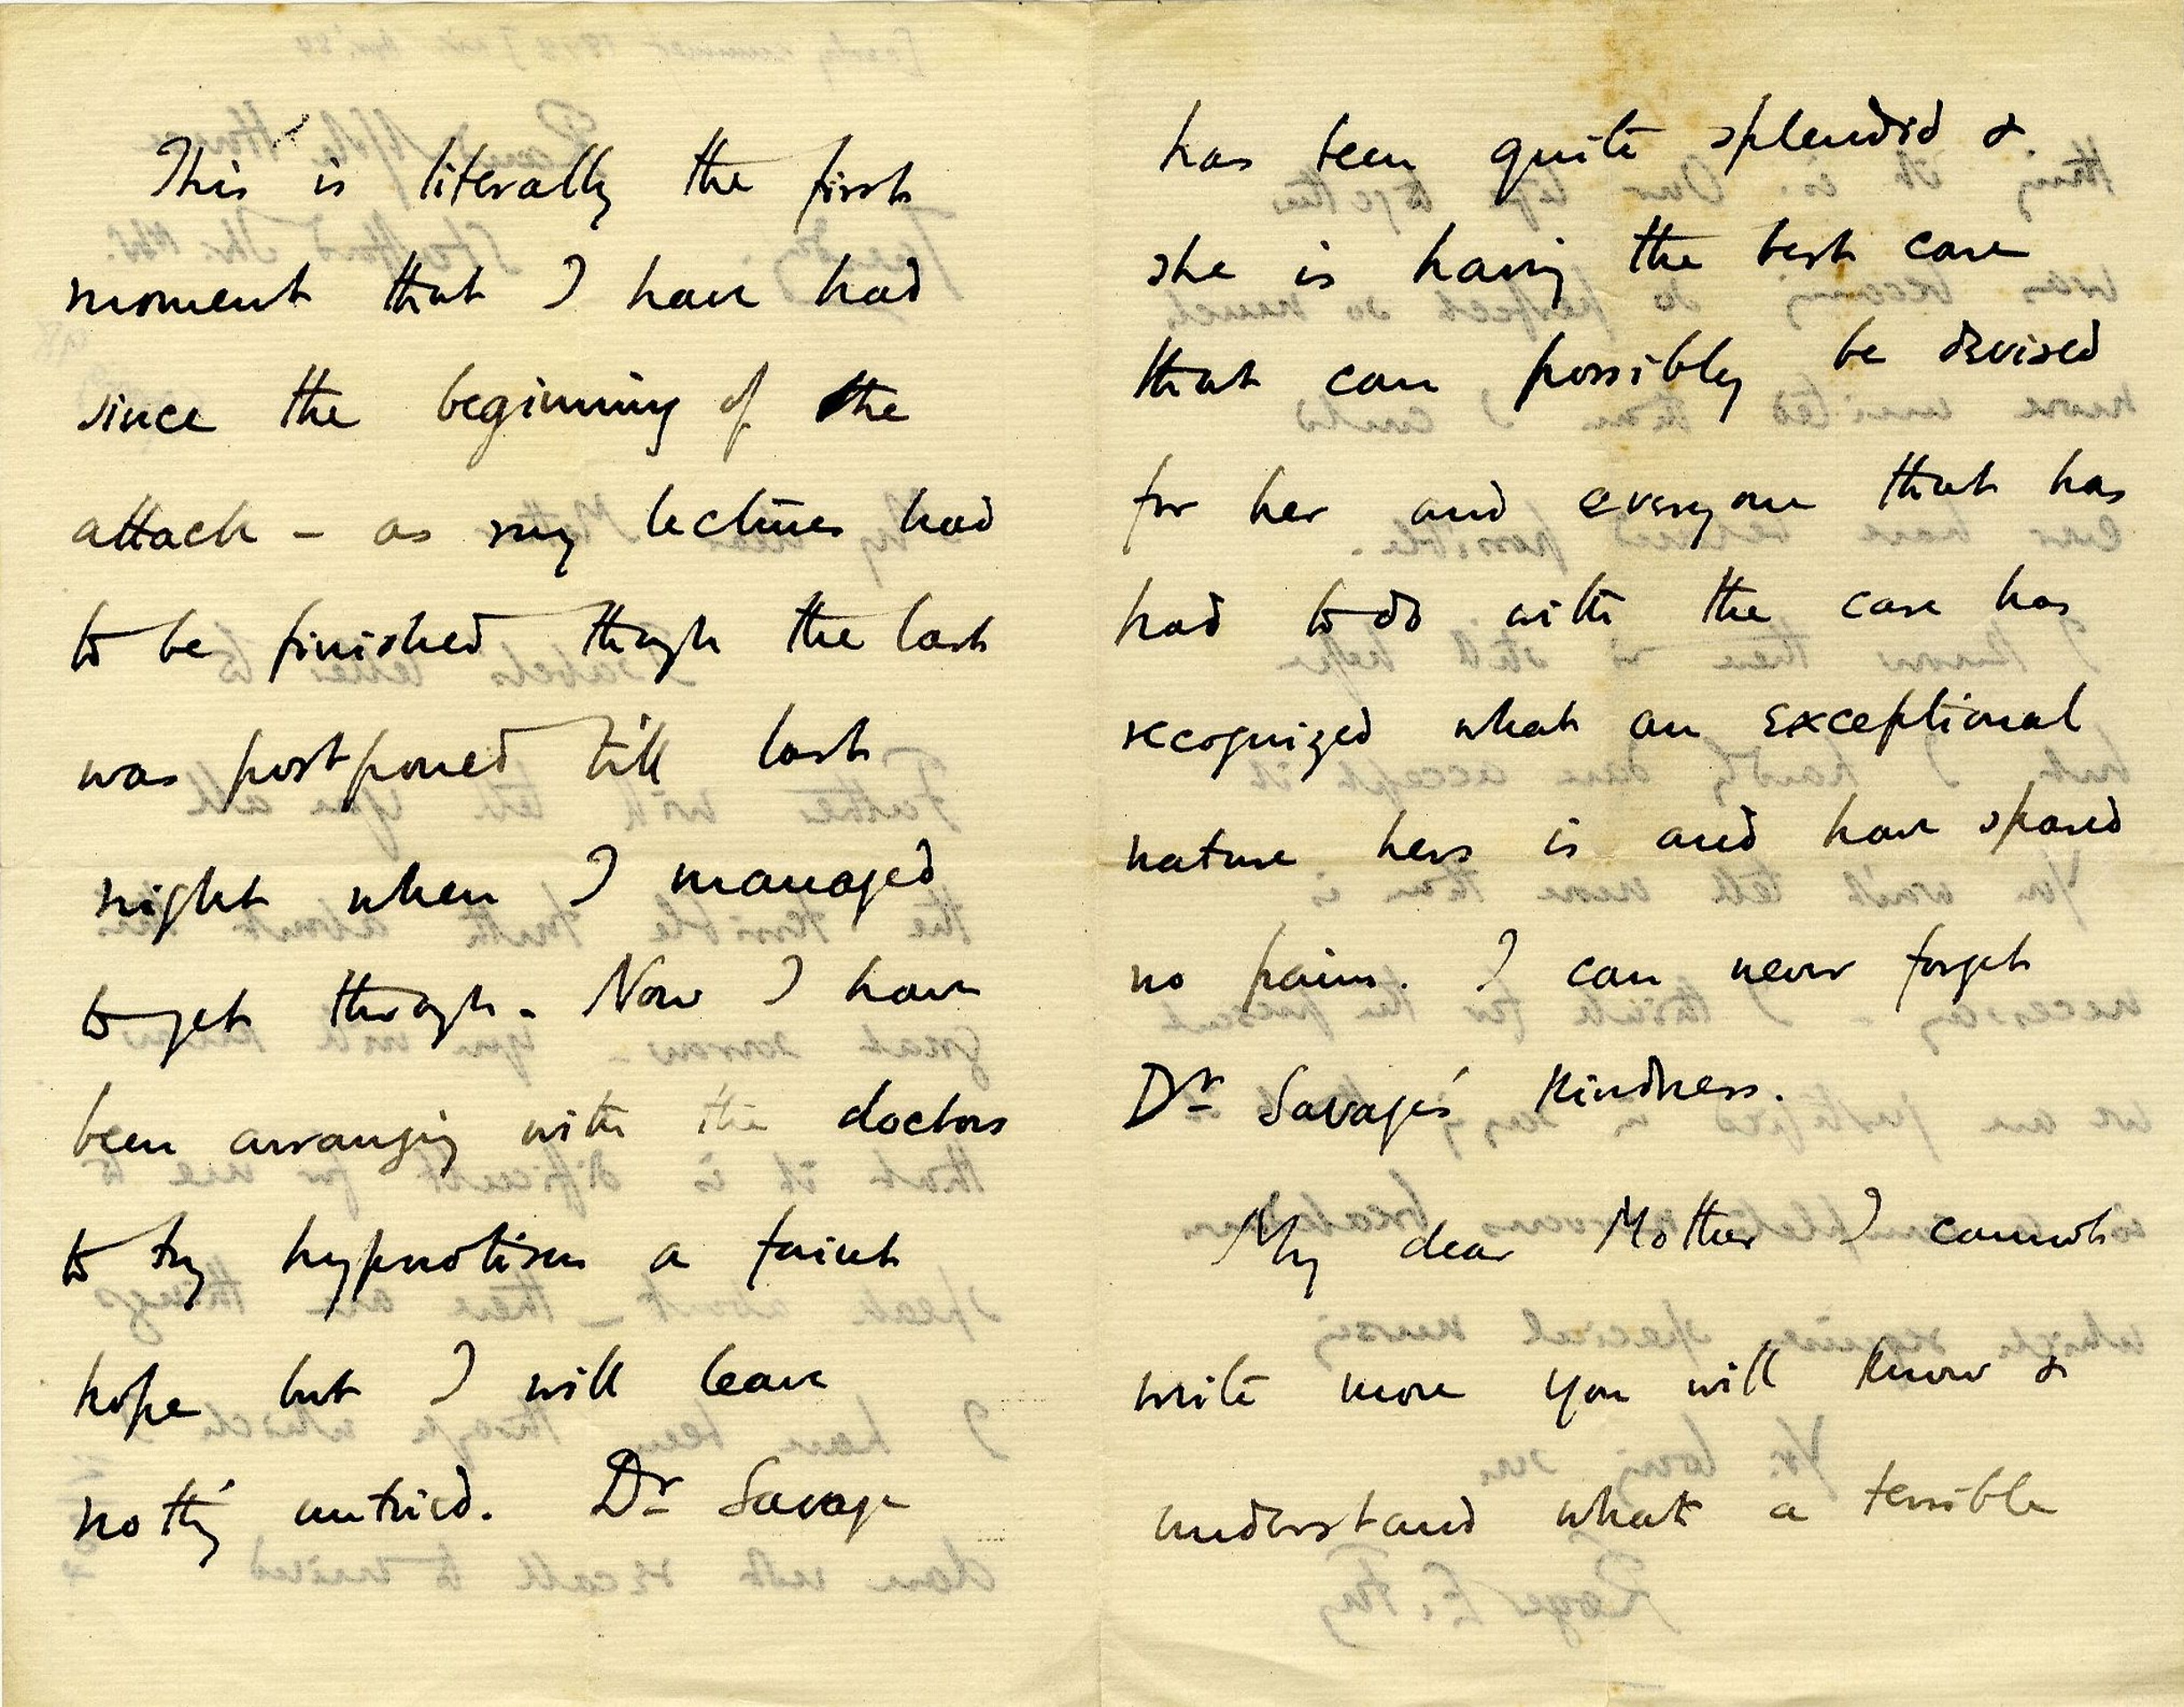 This is literally the first
moment that I have had
since the beginning of the
attack – as my lectures had
to be finished though the last
was postponed till last
night when I managed
to get through. Now I have
been arranging with the doctors
to try hypnotism a faint
hope but I will leave
nothing untried. Dr Savage
has been quite splendid &
she is having the best care
that can possibly be devised
for her and everyone that has
had to do with the case has
recognized what an exceptional
nature hers is and have spared
no pains. I can never forget
Dr Savage's kindness.
My dear Mother I cannot
write more you will know &
understand what a terrible